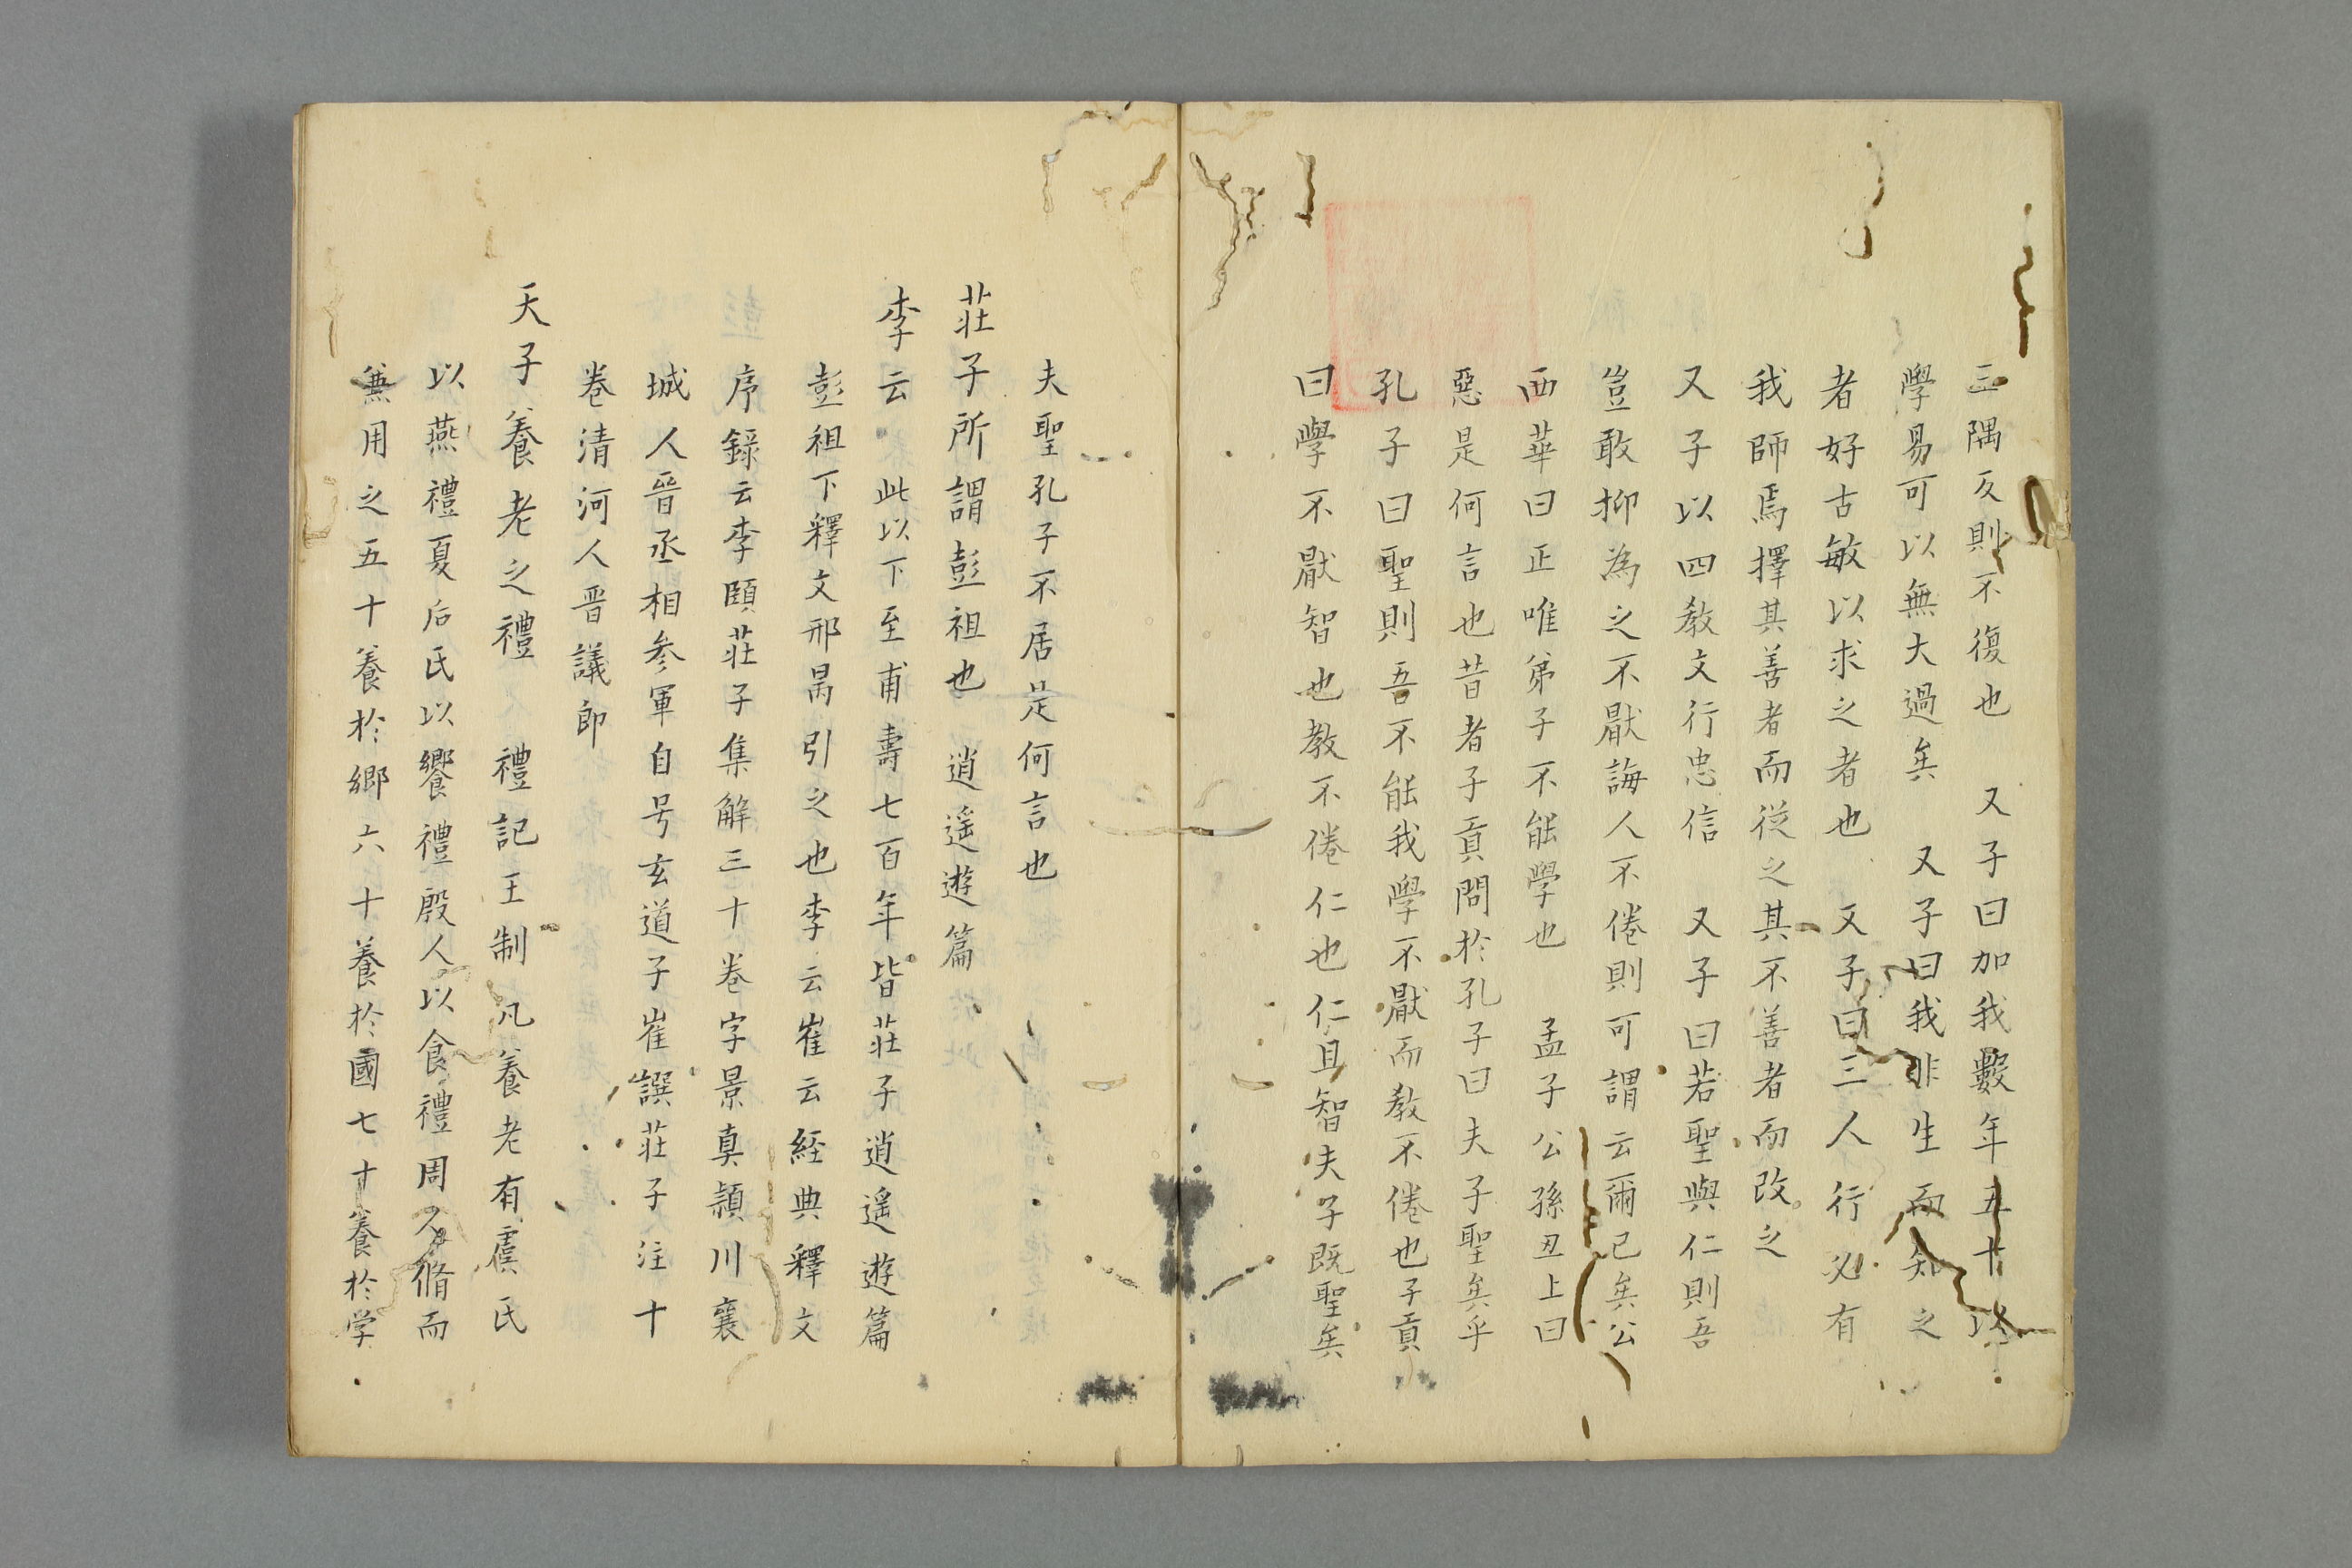 三隅反則不復也　又子曰加我數年五十以
學易可以無大過矣　又子曰我非生而知之
者好古敏以求之者也　又子曰三人行必有
我師焉擇其善者而從之其不善者而改之
又子以四教文行忠信　又子曰若聖與仁則吾
豈敢抑為之不厭誨人不倦則可謂云爾已矣公
西華曰正唯弟子不能學也　孟子公孫丑上曰
惡是何言也昔者子貢問於孔子曰夫子聖矣乎
孔子曰聖則吾不能我學不厭而教不倦也子貢
曰學不厭智也教不倦仁也仁且智夫子既聖矣
夫聖孔子不居是何言也
莊子所謂彭祖也　逍遥遊篇
李云　此以下至甫壽七百年皆莊子逍遥遊篇
彭祖下釋文邢昺引之也李云崔云経典釋文
序録云李頤莊子集解三十巻字景真潁川襄
城人晉丞相参軍自号玄道子崔譔莊子注十
巻清河人晋議郎
天子養老之禮　禮記王制　凡養老有虞氏
以燕禮夏后氏以饗禮殷人以食禮周人脩而
兼用之五十養於鄉六十養於國七十養於学